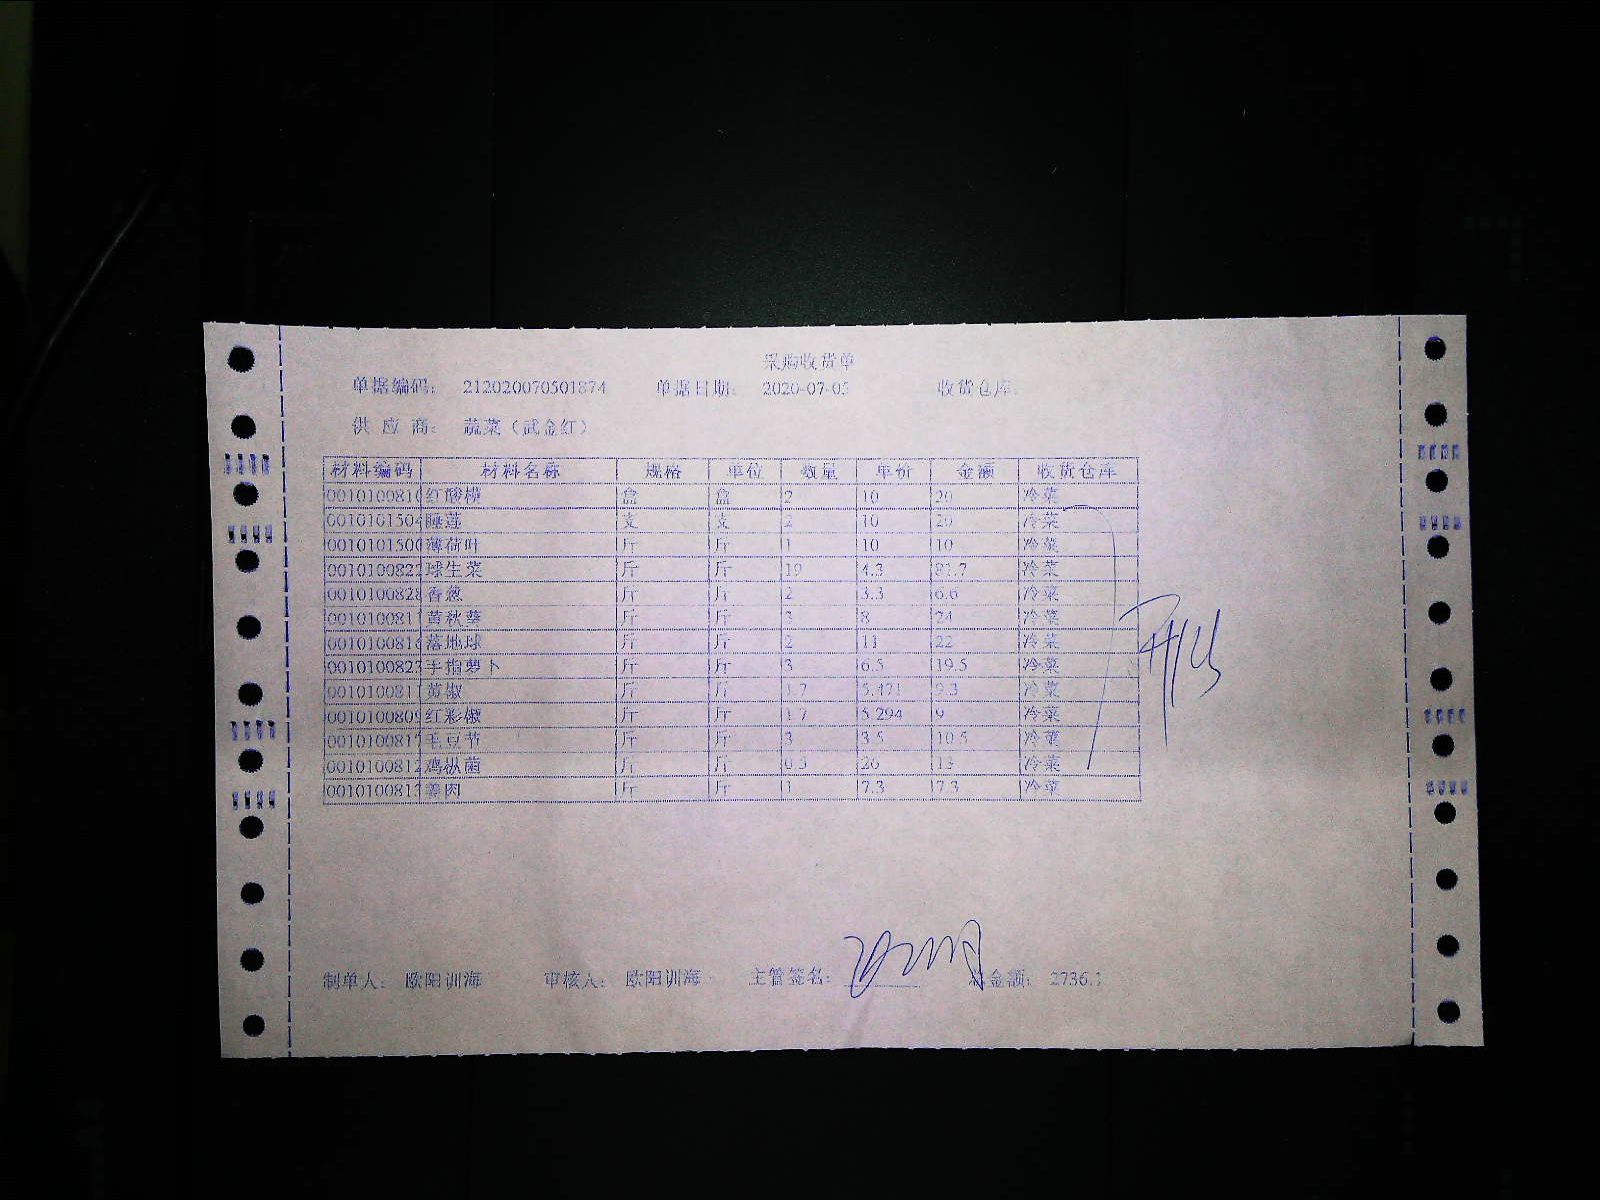 采购收货单
单据编码: 212020070501874 单据日期: 2020-07-05 收货仓库:
供 应 商: 蔬菜（武金红）
材料编码 材料名称 规格 单位 数量 单价 金额 收货仓库
0010100810 红酸模 盒 盒 2 10 20 冷菜
0010101504 睡莲 支 支 2 10 20 冷菜
0010101500 薄荷叶 斤 斤 1 10 10 冷菜
0010100822 球生菜 斤 斤 19 4.3 81.7 冷菜
0010100828 香葱 斤 斤 2 3.3 6.6 冷菜
001010081 黄秋葵 斤 斤 3 8 24 冷菜
001010081 落地球 斤 斤 2 11 22 冷菜
001010082 手指萝卜 斤 斤 3 6.5 19.5 冷菜
001010081 黄椒 斤 斤 1.7 5.471 9.3 冷菜
0010100809 红彩椒 斤 斤 1.7 5.294 9 冷菜
001010081 毛豆节 斤 斤 3 3.5 10.5 冷菜
0010100812 鸡枞菌 斤 斤 0.5 26 13 冷菜
001010081 姜肉 斤 斤 1 7.3 7.3 冷菜
制单人: 欧阳训海 审核人: 欧阳训海 主管签名: 总金额: 2736.1